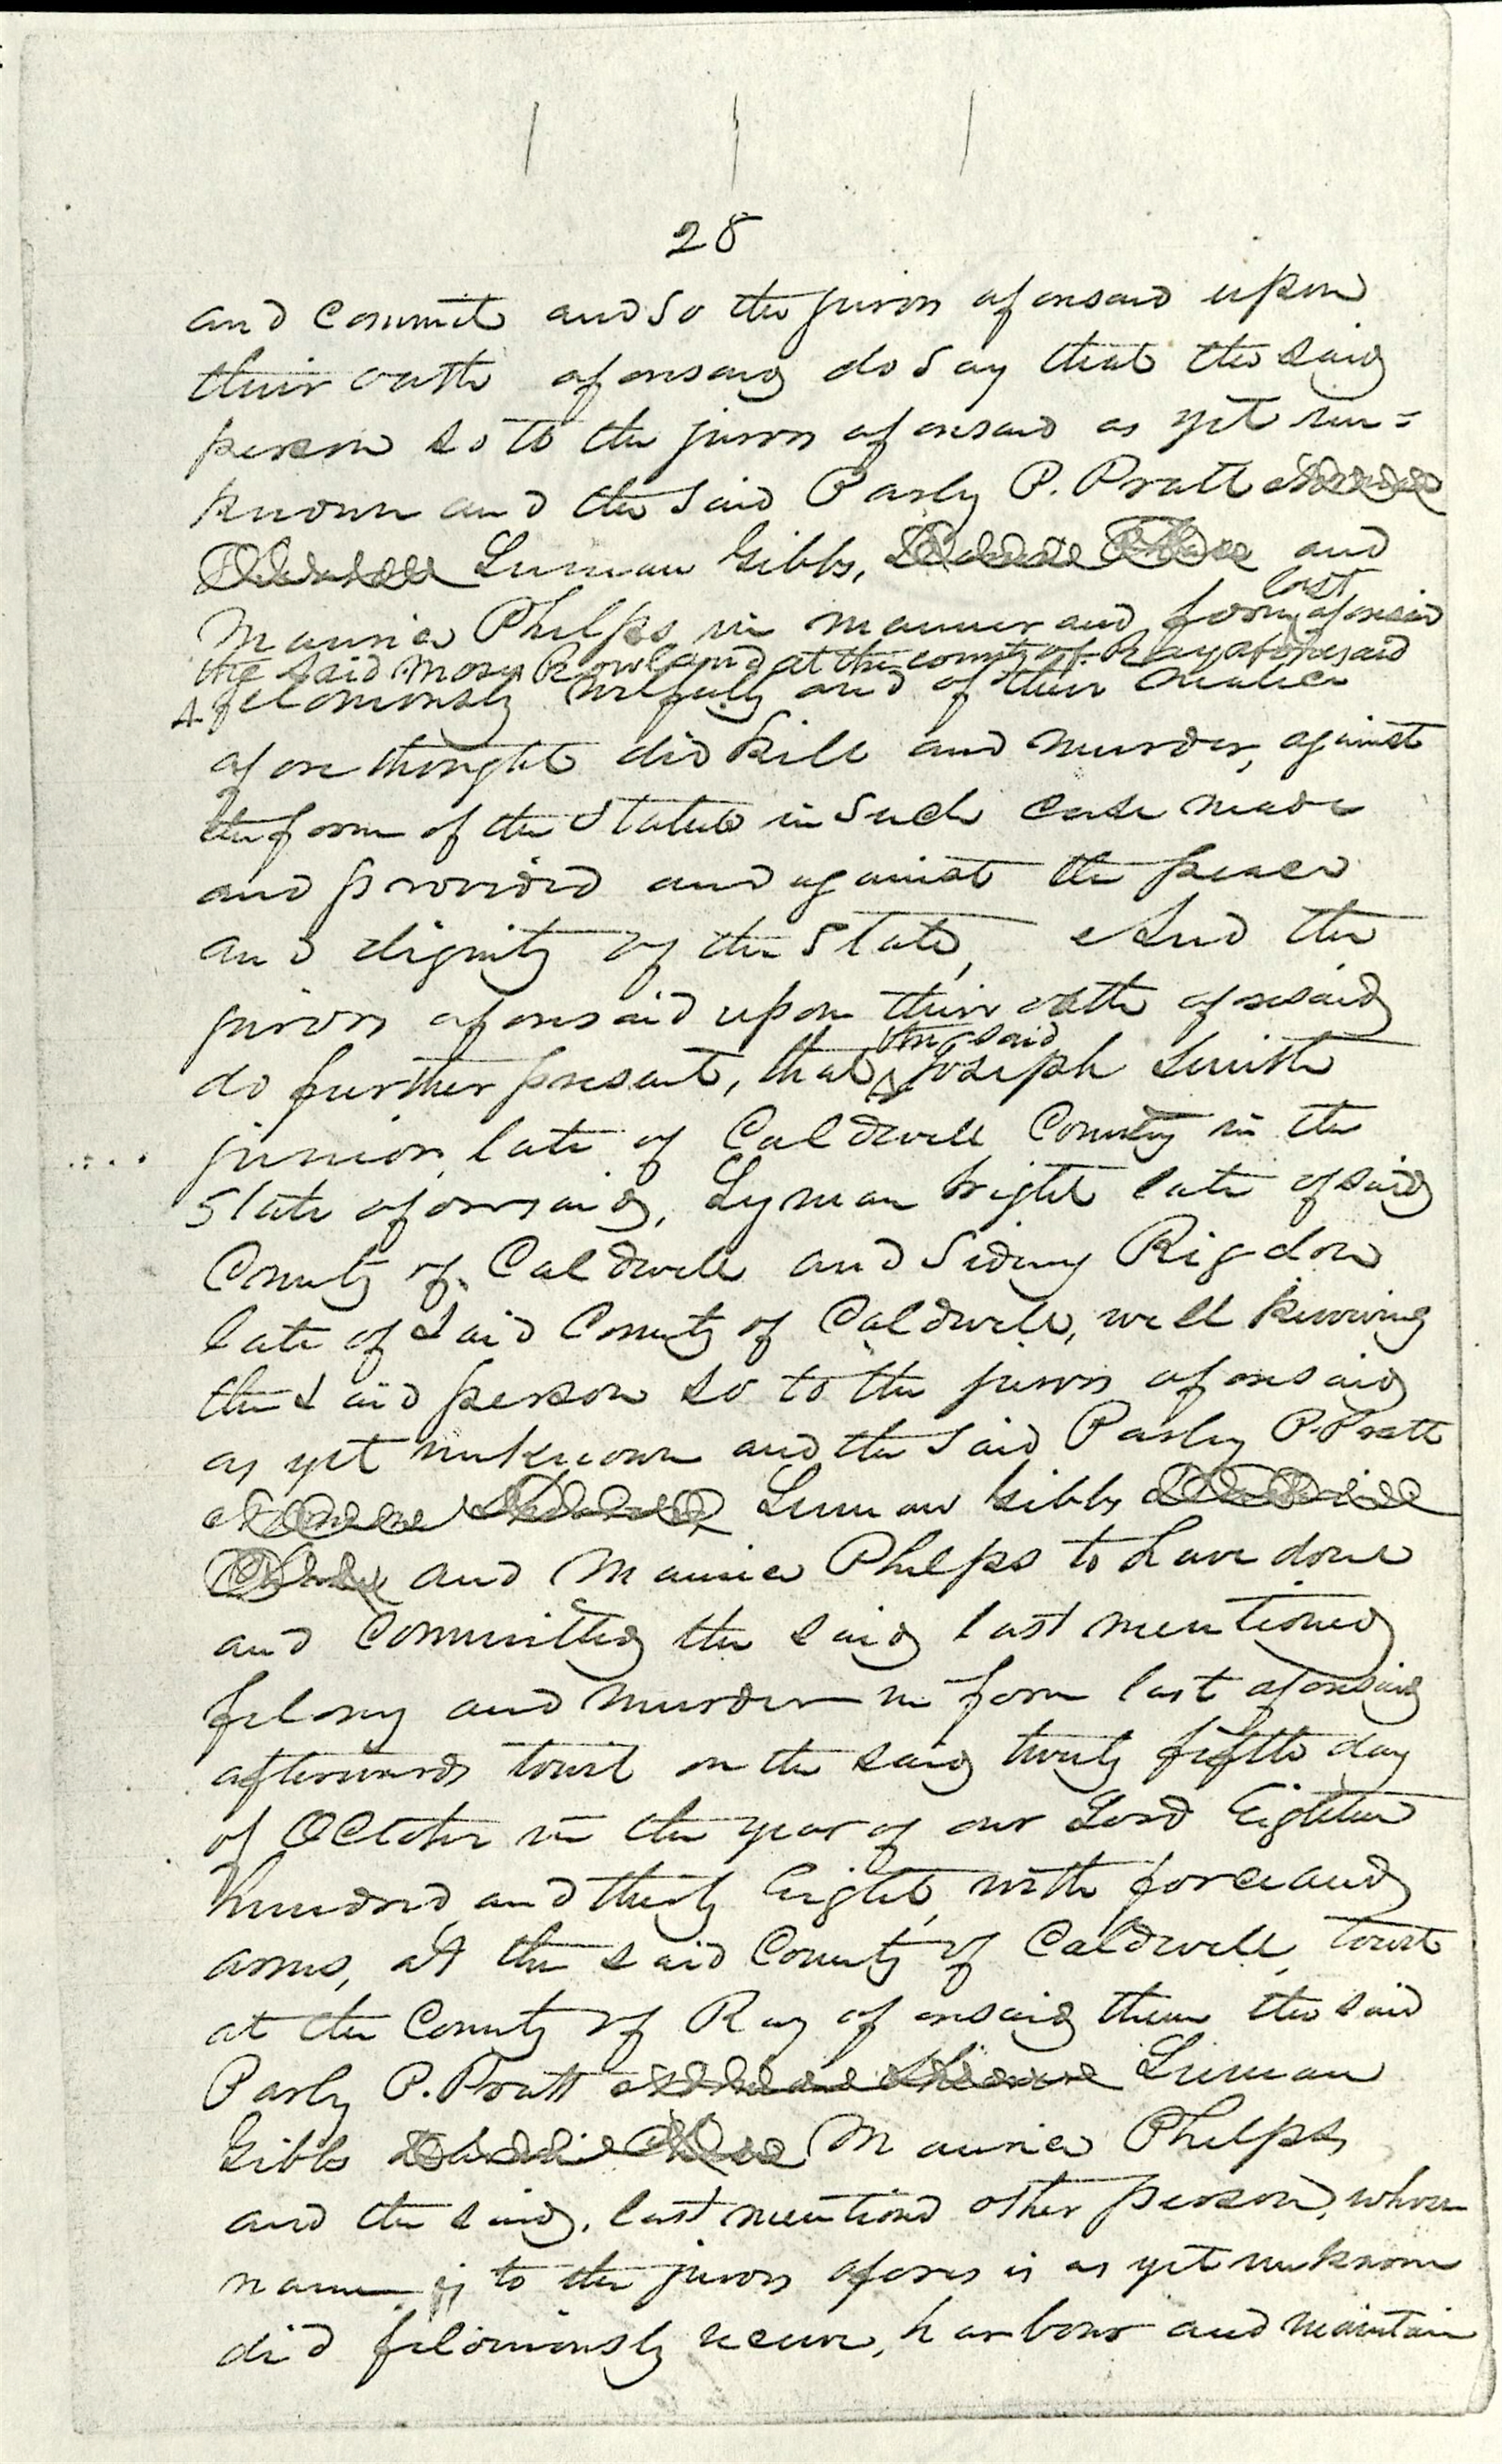 28
and commit and so the jurors aforesaid upon
their oath aforesaid do say that the said
person so to the jurors aforesaid as yet un=
known and the said Parly P. Pratt
Luman Gibbs, and
Maurice Phelps in manner and form last aforesaid
the said Moses Rowland at the county of Ray aforesaid
feloniously wilfully and of their malice
aforethought did kill and murder, against
the form of the Statute in Such case made
and provided and against the peace
and dignity of the State, And the
jurors aforesaid upon their oath aforesaid
do further present, that the said Joseph Smith
junior, late of Caldwell County in the
State aforesaid, Lyman Wight late of said
County of Caldwell and Sidney Rigdon
late of Said County of Caldwell, well knowing
the said person so to the jurors aforesaid
as yet unknown and the said Parley P. Pratt
Luman Gibbs
and Maurice Phelps to have done
and committed the said last mentioned
felony and murder in form last aforesaid
afterwards towit on the said twenty fifth day
of October in the year of our Lord Eighteen
hundred and thirty Eight, with force and
arms, at the said County of Caldwell, towit
at the County of Ray aforesaid them the said
Parly P. Pratt Luman
Gibbs Maurice Phelps
and the said, last mentiond other person, whose
name is to the jurors afores is as yet unknown
did feloniously receive, harbour and maintain